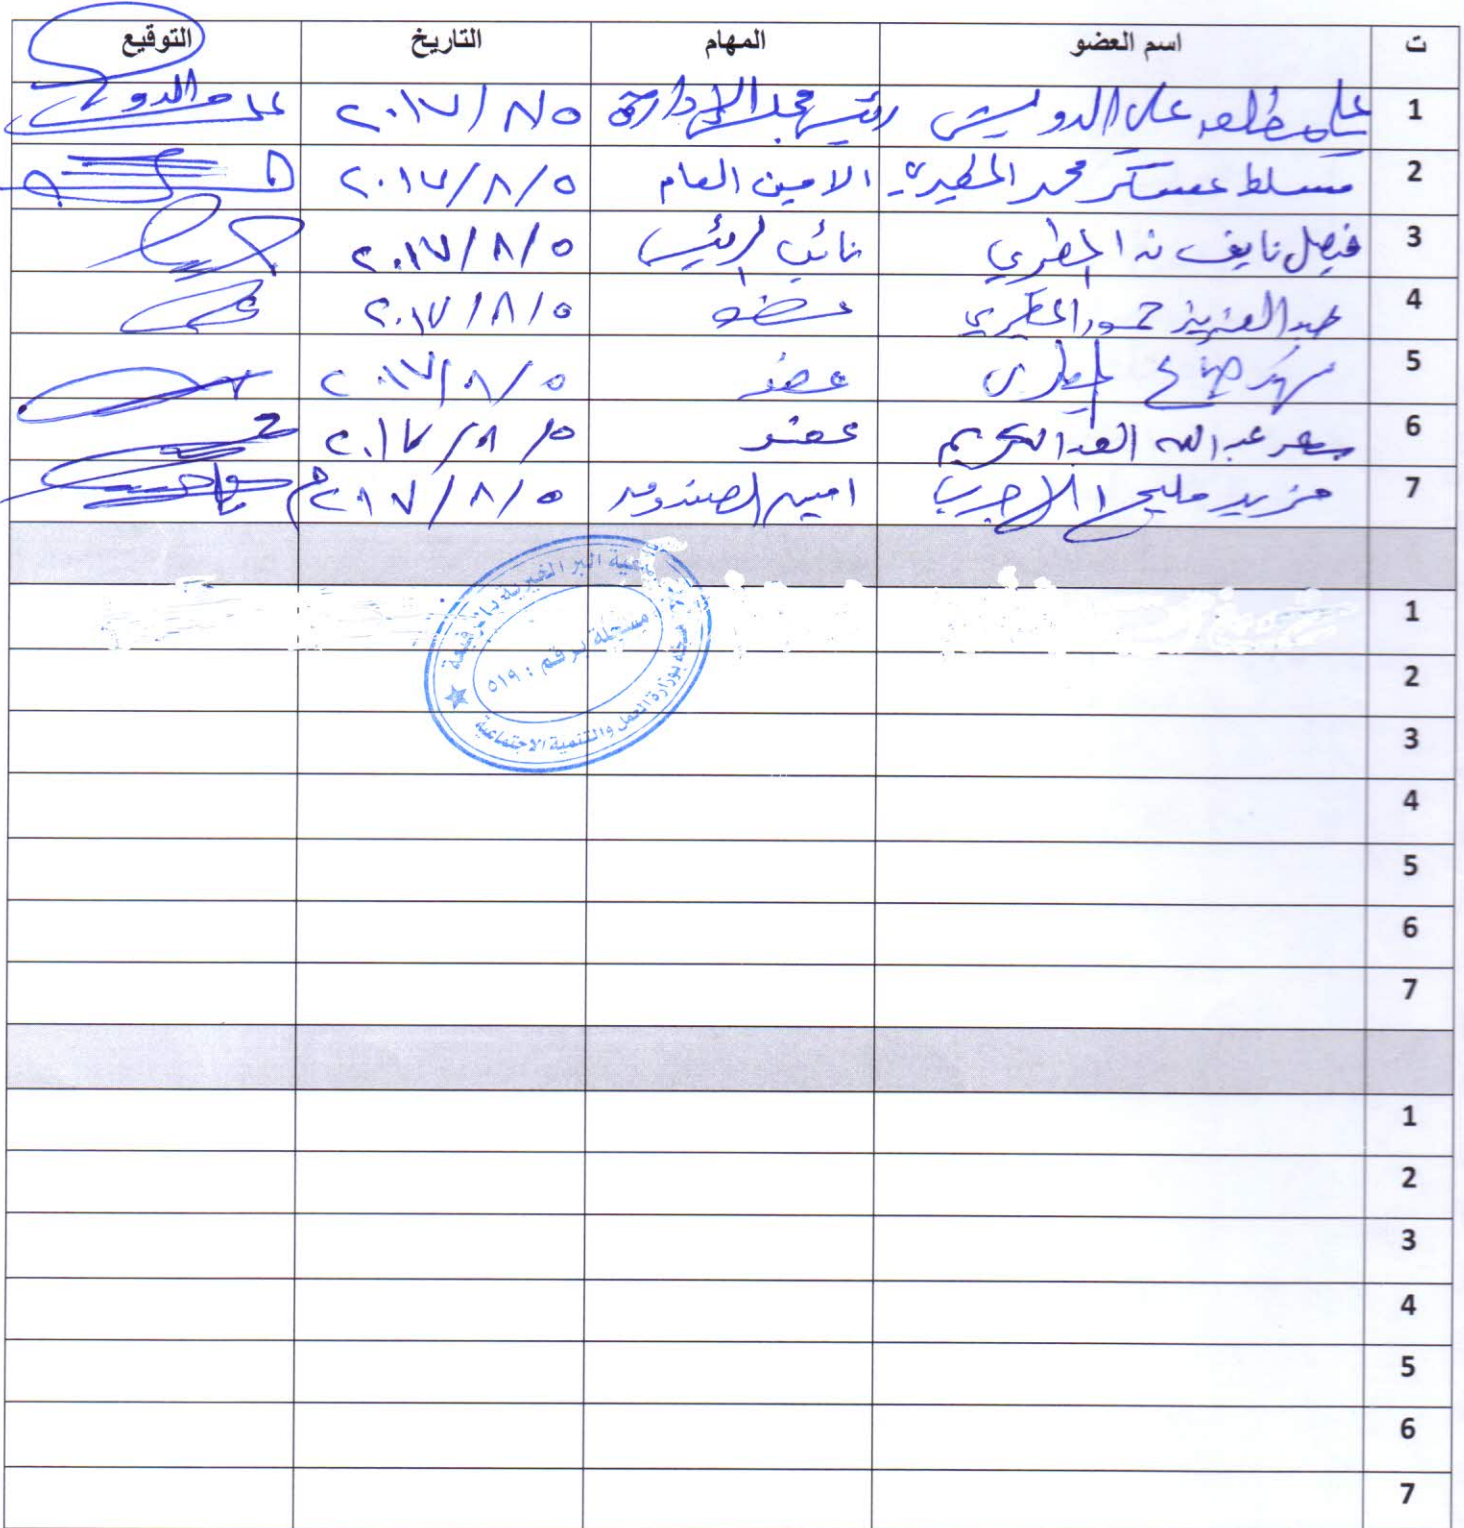 ت اسم العضو المهام التاريخ التوقيع
1 علي مطلق علي الدويش رئيس مجلس الإدارة ٢٠١٧/٨/٥
2 مسلط عسكر محمد المطيري الامين العام ٢٠١٧/٨/٥
3 فيصل نايف المطيري نائب الرئيس ٢٠١٧/٨/٥
4 عبدالعزيز حمود المطيري عضو ٢٠١٧/٨/٥
5 عضو ٢٠١٧/٨/٥
6 عبدالله العبدالكريم عضو ٢٠١٧/٨/٥
7 مزيد مليح امين الصندوق ٢٠١٧/٨/٥م
جمعية البر الخيرية
مسجلة برقم : ٥١٩
بوزارة العمل والتنمية الاجتماعية
1
2
3
4
5
6
7
1
2
3
4
5
6
7